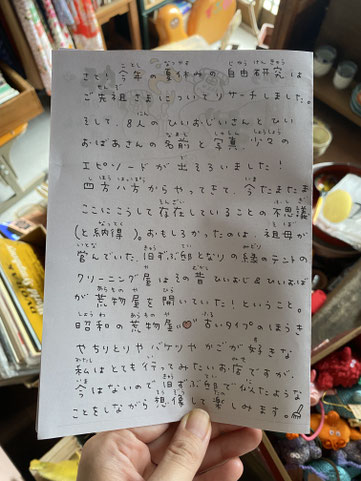 さて！今年の夏休みの自由研究は
ご先祖さまについてリサーチしました。
そして、8人のひいおじいさんとひい
おばあさんの名前と写真、少々の
エピソードが出そろいました！
四方八方からやってきて、今たまたま
ここにこうして存在していることの不思議
(と納得)。おもしろかったのは、祖母が
営んでいた、旧ずぶ邸となりの緑のテントの
クリーニング屋はその昔ひいおじ&ひいおば
が荒物屋を開いていた！ということ。
昭和の荒物屋♡古いタイプのほうき
やちりとりやバケツやかごが好きな
私はとても行ってみたいお店ですが、
今はないので旧ずぶ邸で似たような
ことをしながら想像して楽しみます。